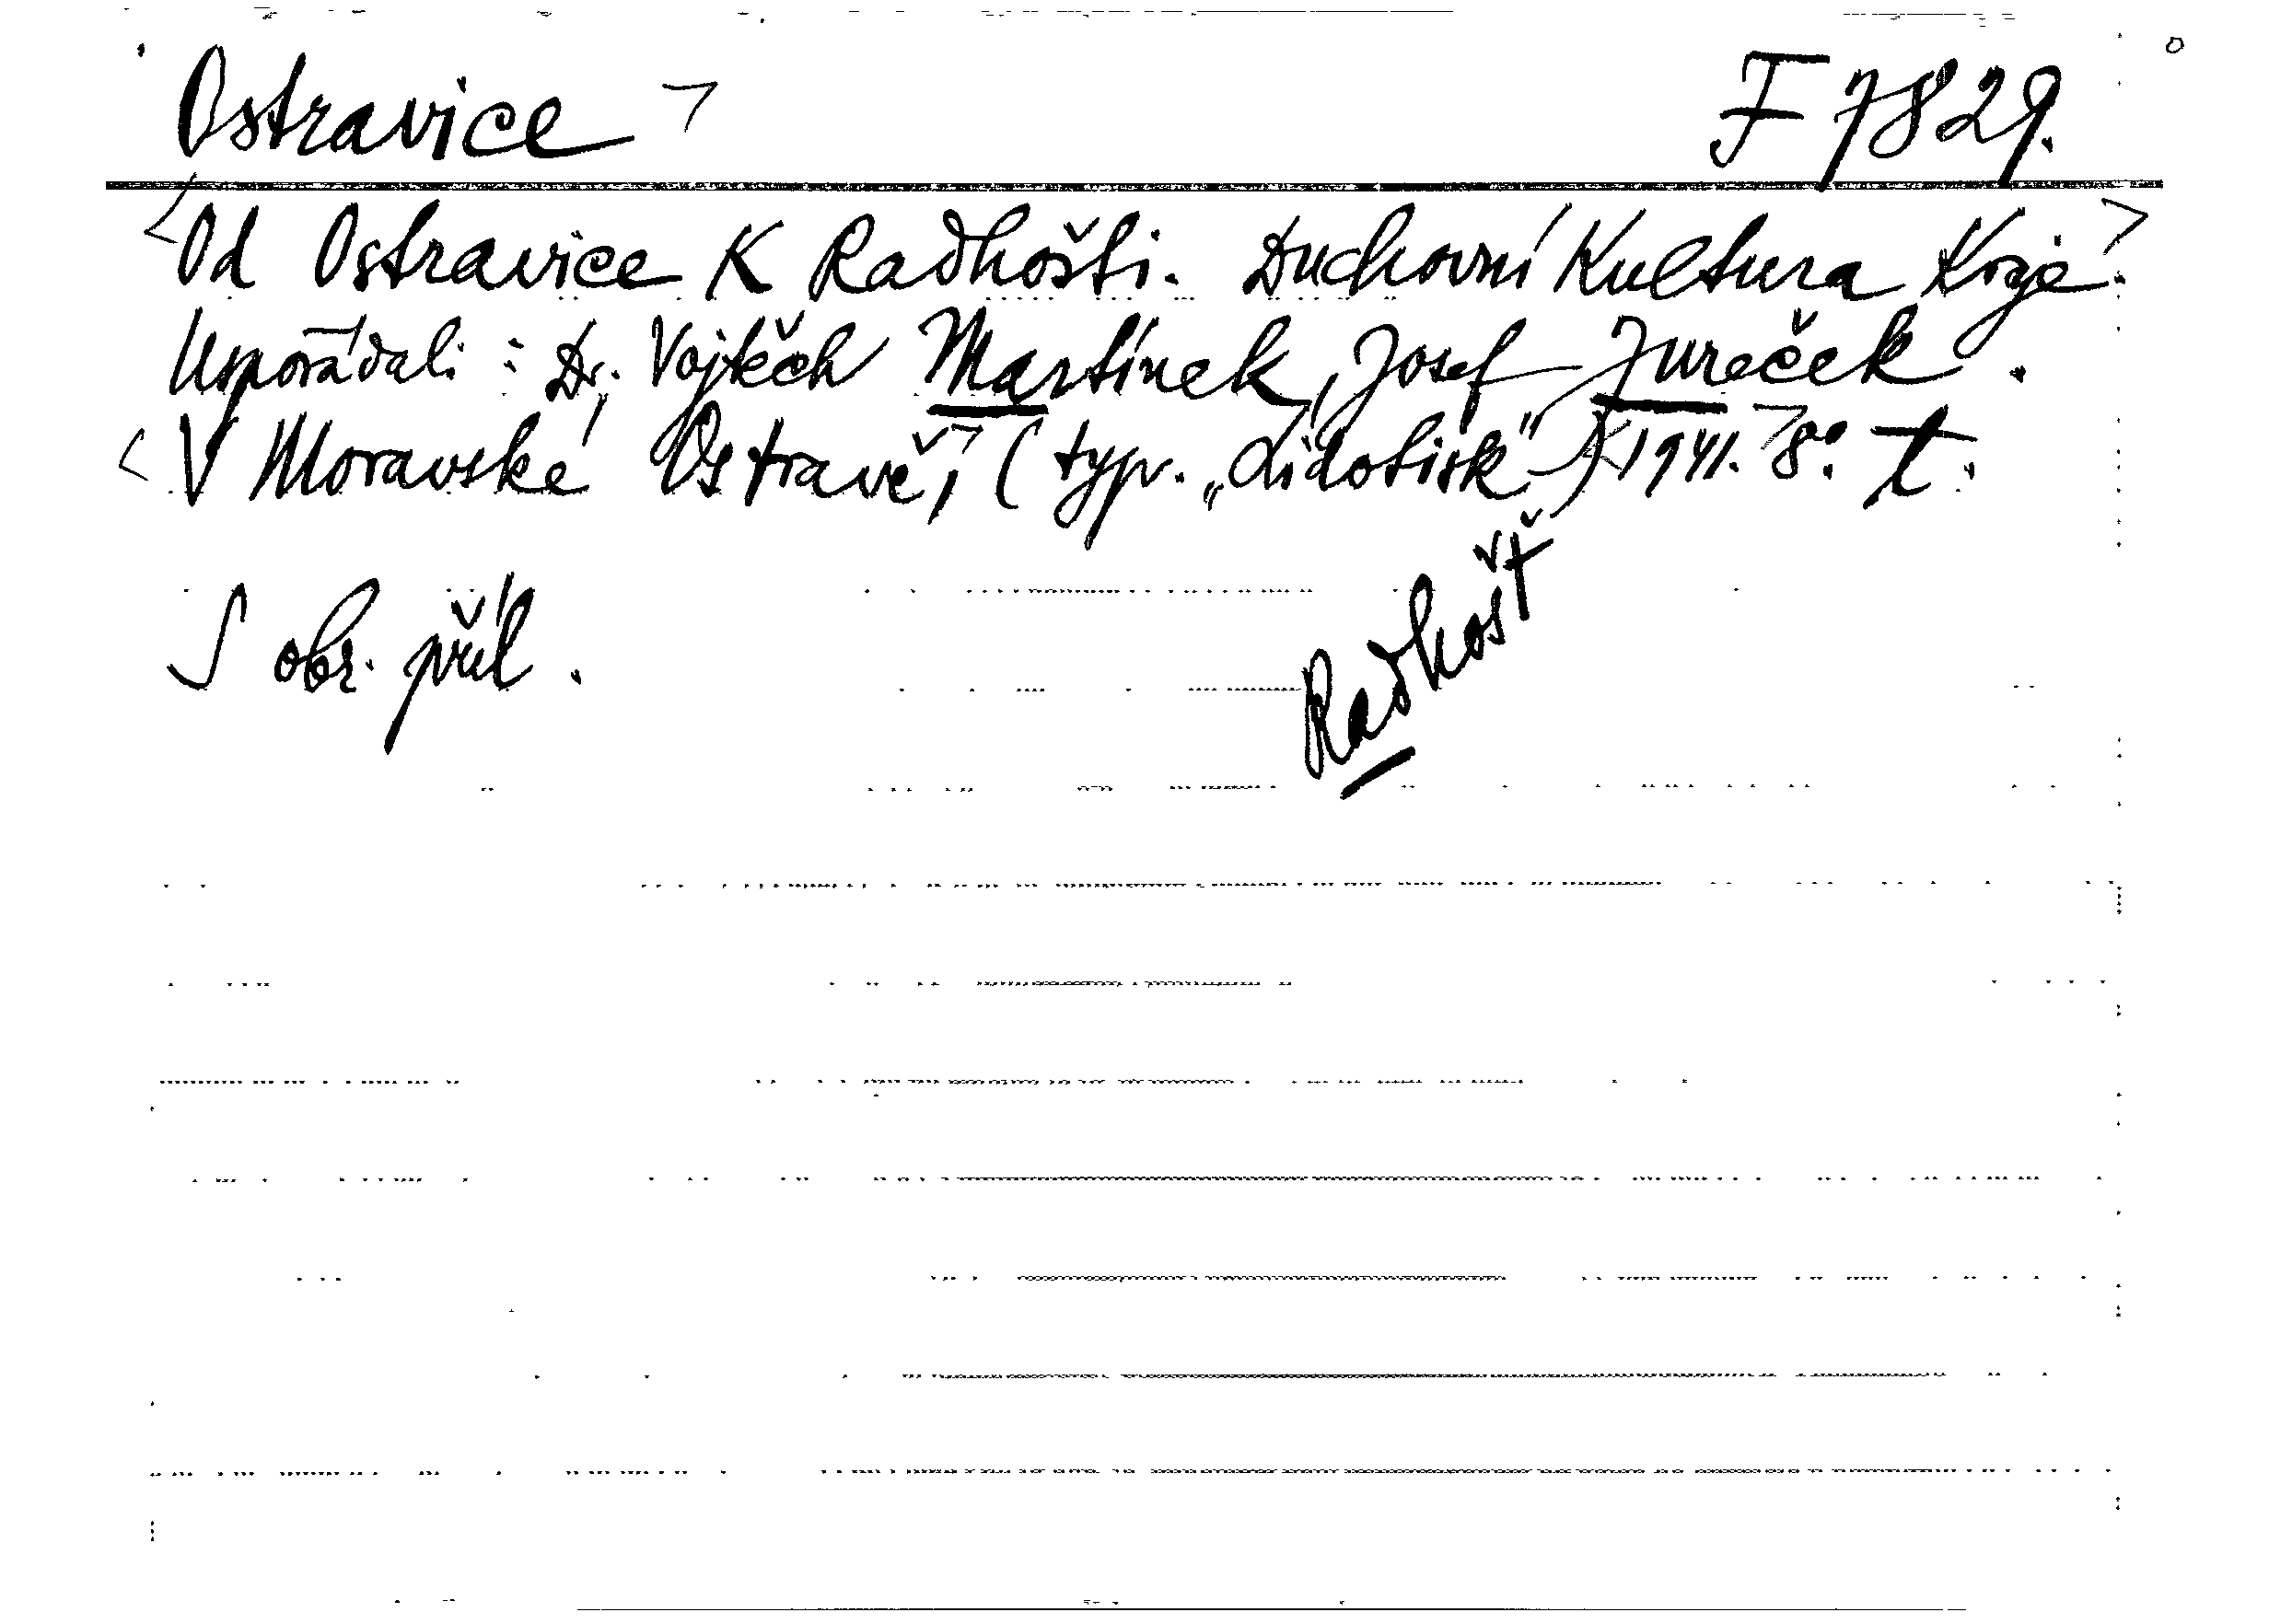 Ostravice ㄱ F 7829.
<Od Ostravice k Radhošti. Duchovní kultura kraje.>
Uspořádali: Dr. Vojtěch Martínek, Josef Jureček.
<V Moravské Ostravě,ㄱ (typ. „Lidotisk") <1941.ㄱ 8°. t.
S obr. příl.
Radhošť